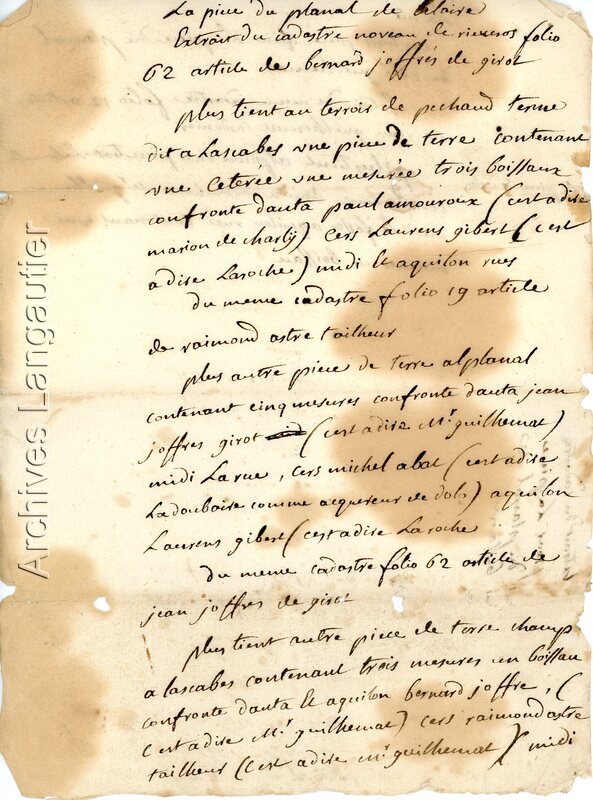 La piece du planal de belaire
Extrait du cadastre noveau de rieuros folio
62 article de bernard joffrés de girot
plus tient au terroir de pechaud terme
dit a Lascabes vne piece de terre contenant
vne ceterée vne mesurée trois boissaux
confronte dauta paul amouroux (cest adire
marion de charly) cers Laurens gibert (cest
adire Laroche) midi et aquilon rues
du meme cadastre folio 19 article
de raimond astre tailheur
plus autre piece de terre al planal
contenant cinq mesures confronte dauta jean
joffres girot (cest adire Mr guilhemat)
midi La rue, cers michel abat (cest adire
Ladoubaire comme acquereur de dob) aquilon
Laurens gibert (cest adire Laroche
du meme cadastre folio 62 article de
jean joffres de girot
plus tient autre piece de terre champ
a lascabes contenant trois mesures un boissau
confronte dauta et aquilon bernard joffre, (
cest adire Mr guilhemat) cers raimond astre
tailheur (cest adire mr guilhemat) midi
Archives Langautier